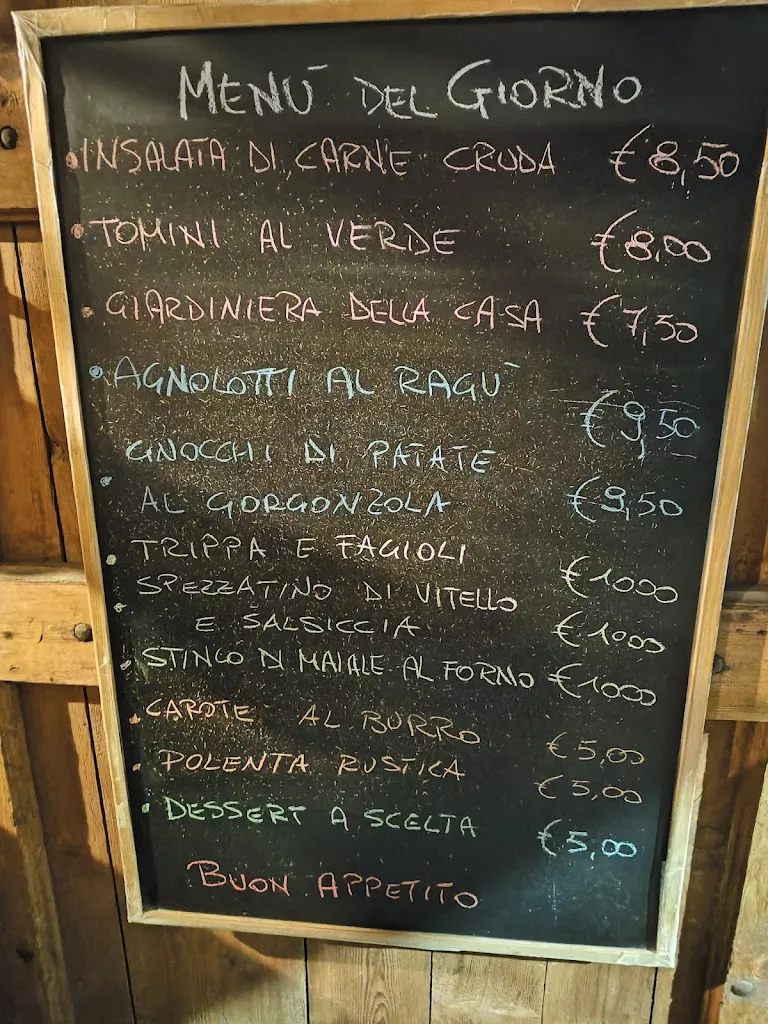 MENÙ DEL GIORNO
• INSALATA DI CARNE CRUDA €8,50
• TOMINI AL VERDE €8,00
• GIARDINIERA DELLA CASA €7,50
• AGNOLOTTI AL RAGÙ €9,50
• GNOCCHI DI PATATE
AL GORGONZOLA €9,50
• TRIPPA E FAGIOLI €10,00
• SPEZZATINO DI VITELLO
E SALSICCIA €10,00
• STINCO DI MAIALE AL FORNO €10,00
• CAROTE AL BURRO €5,00
• POLENTA RUSTICA €5,00
• DESSERT A SCELTA €5,00
BUON APPETITO